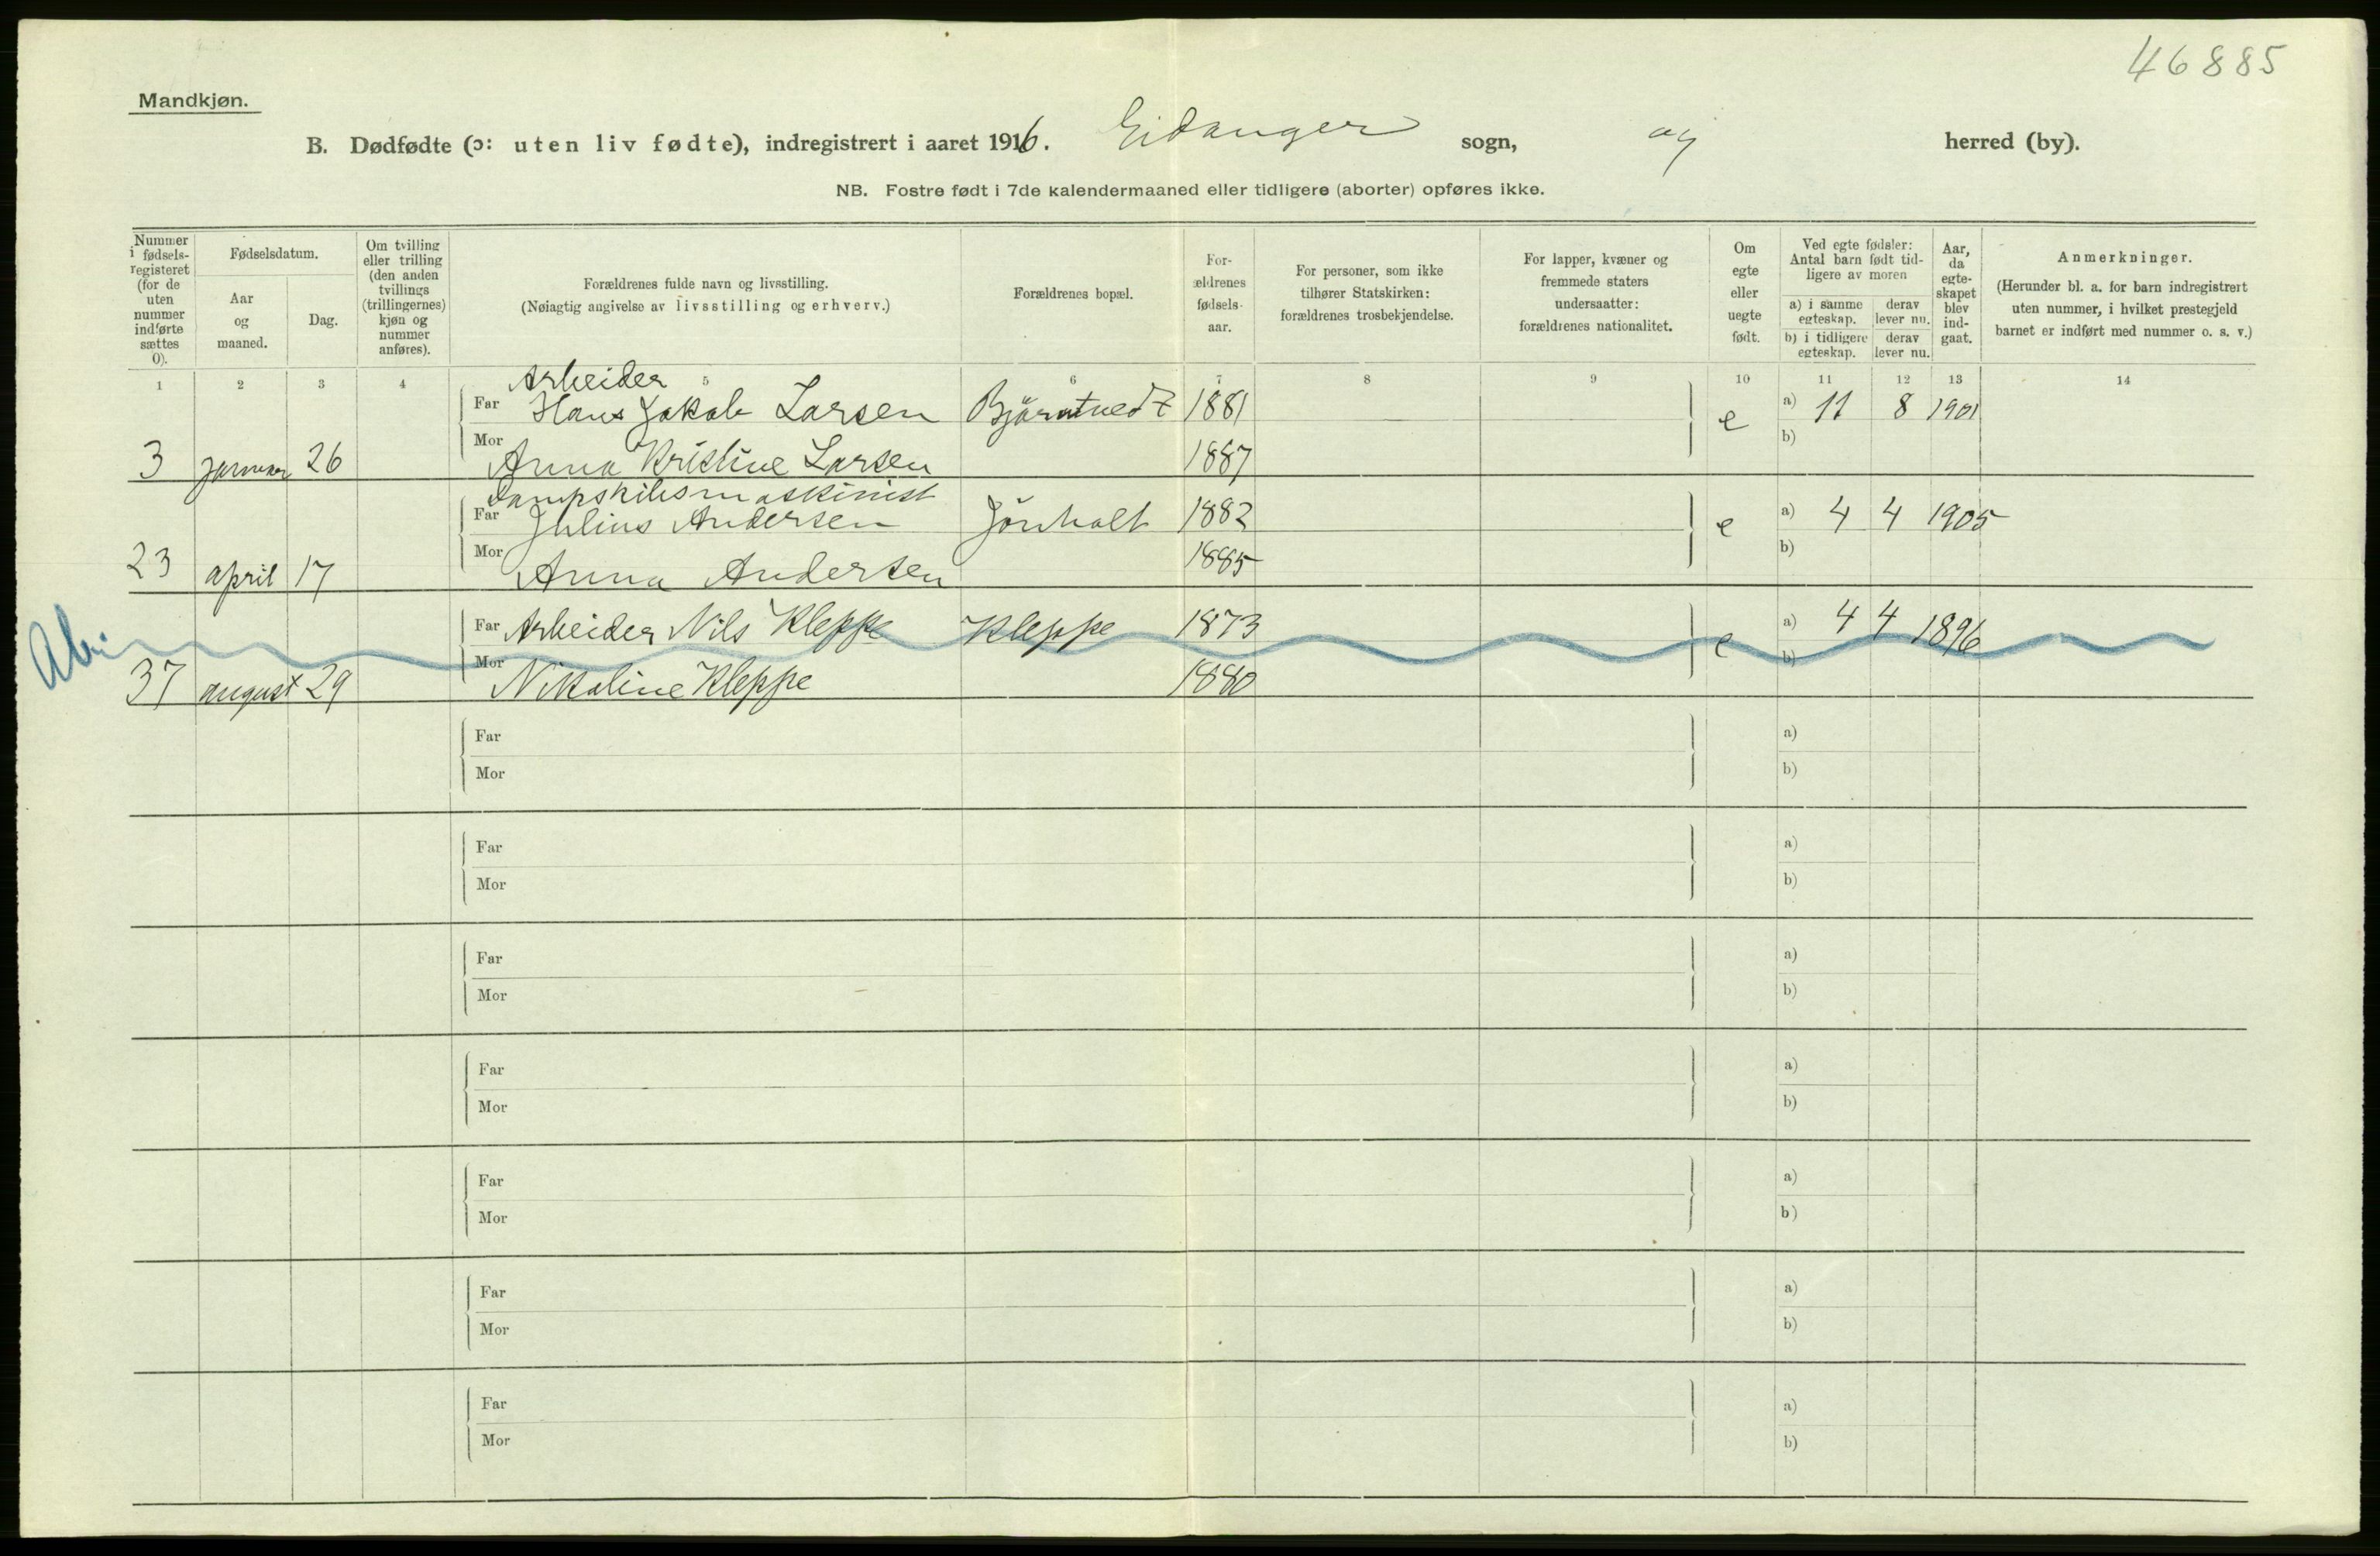 46885
Mandkjøn.
B. Dødfødte (ɔ: uten liv fødte), indregistrert i aaret 1916. Eidanger sogn, og herred (by).
NB. Fostre født i 7de kalendermaaned eller tidligere (aborter) opføres ikke.
Nummer i fødsels-registeret (for de uten nummer indførte sættes 0).
Fødselsdatum.
Aar og maaned.
Dag.
Om tvilling eller trilling (den anden tvillings (trillingernes) kjøn og nummer anføres).
Forældrenes fulde navn og livsstilling.
(Nøiagtig angivelse av livsstilling og erhverv.)
Forældrenes bopæl.
For-ældrenes fødsels-aar.
For personer, som ikke tilhører Statskirken: forældrenes trosbekjendelse.
For lapper, kvæner og fremmede staters undersaatter: forældrenes nationalitet.
Om egte eller uegte født.
Ved egte fødsler: Antal barn født tid-ligere av moren
a) i samme egteskap. derav lever nu.
b) i tidligere egteskap. derav lever nu.
Aar, da egte-skapet blev ind-gaat.
Anmerkninger.
(Herunder bl. a. for barn indregistrert uten nummer, i hvilket prestegjeld barnet er indført med nummer o. s. v.)
1 2 3 4 5 6 7 8 9 10 11 12 13 14
Arbeider
Far Hans Jakob Larsen Bjørntvedt 1881 e a) 11 8 1901
3 januar 26 Mor Anna Kristine Larsen 1887 b)
Dampskibsmaskinist
Far Julius Andersen Jönholt 1882 e a) 4 4 1905
23 april 17 Mor Anna Andersen 1885 b)
Far Arbeider Nils Kleppe Kleppe 1873 e a) 4 4 1896
37 august 29 Mor Nikoline Kleppe 1880 b)
Far a)
Mor b)
Far a)
Mor b)
Far a)
Mor b)
Far a)
Mor b)
Far a)
Mor b)
Far a)
Mor b)
Far a)
Mor b)